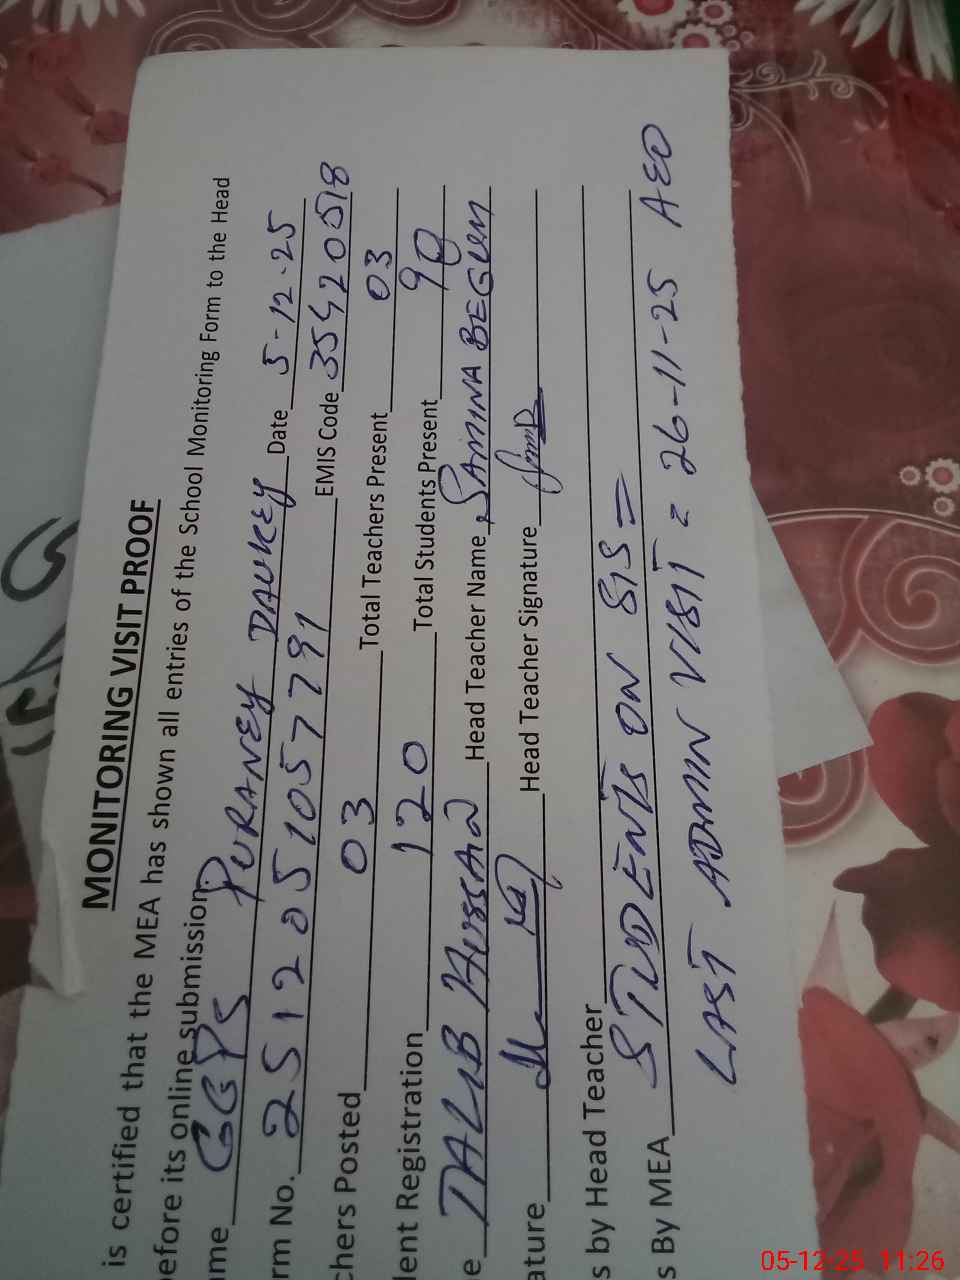 MONITORING VISIT PROOF
is certified that the MEA has shown all entries of the School Monitoring Form to the Head
before its online submission.
ame GGPS PURANEY DAUKEY Date 5-12-25
rm No. 2512051057791 EMIS Code 35420518
chers Posted 03 Total Teachers Present 03
dent Registration 120 Total Students Present 90
e TALIB HUSSAIN Head Teacher Name SAMINA BEGUM
ature Head Teacher Signature
s by Head Teacher
s By MEA STUDENTS ON SIS =
LAST ADMIN VISIT = 26-11-25 AEO
05-12-25 11:26